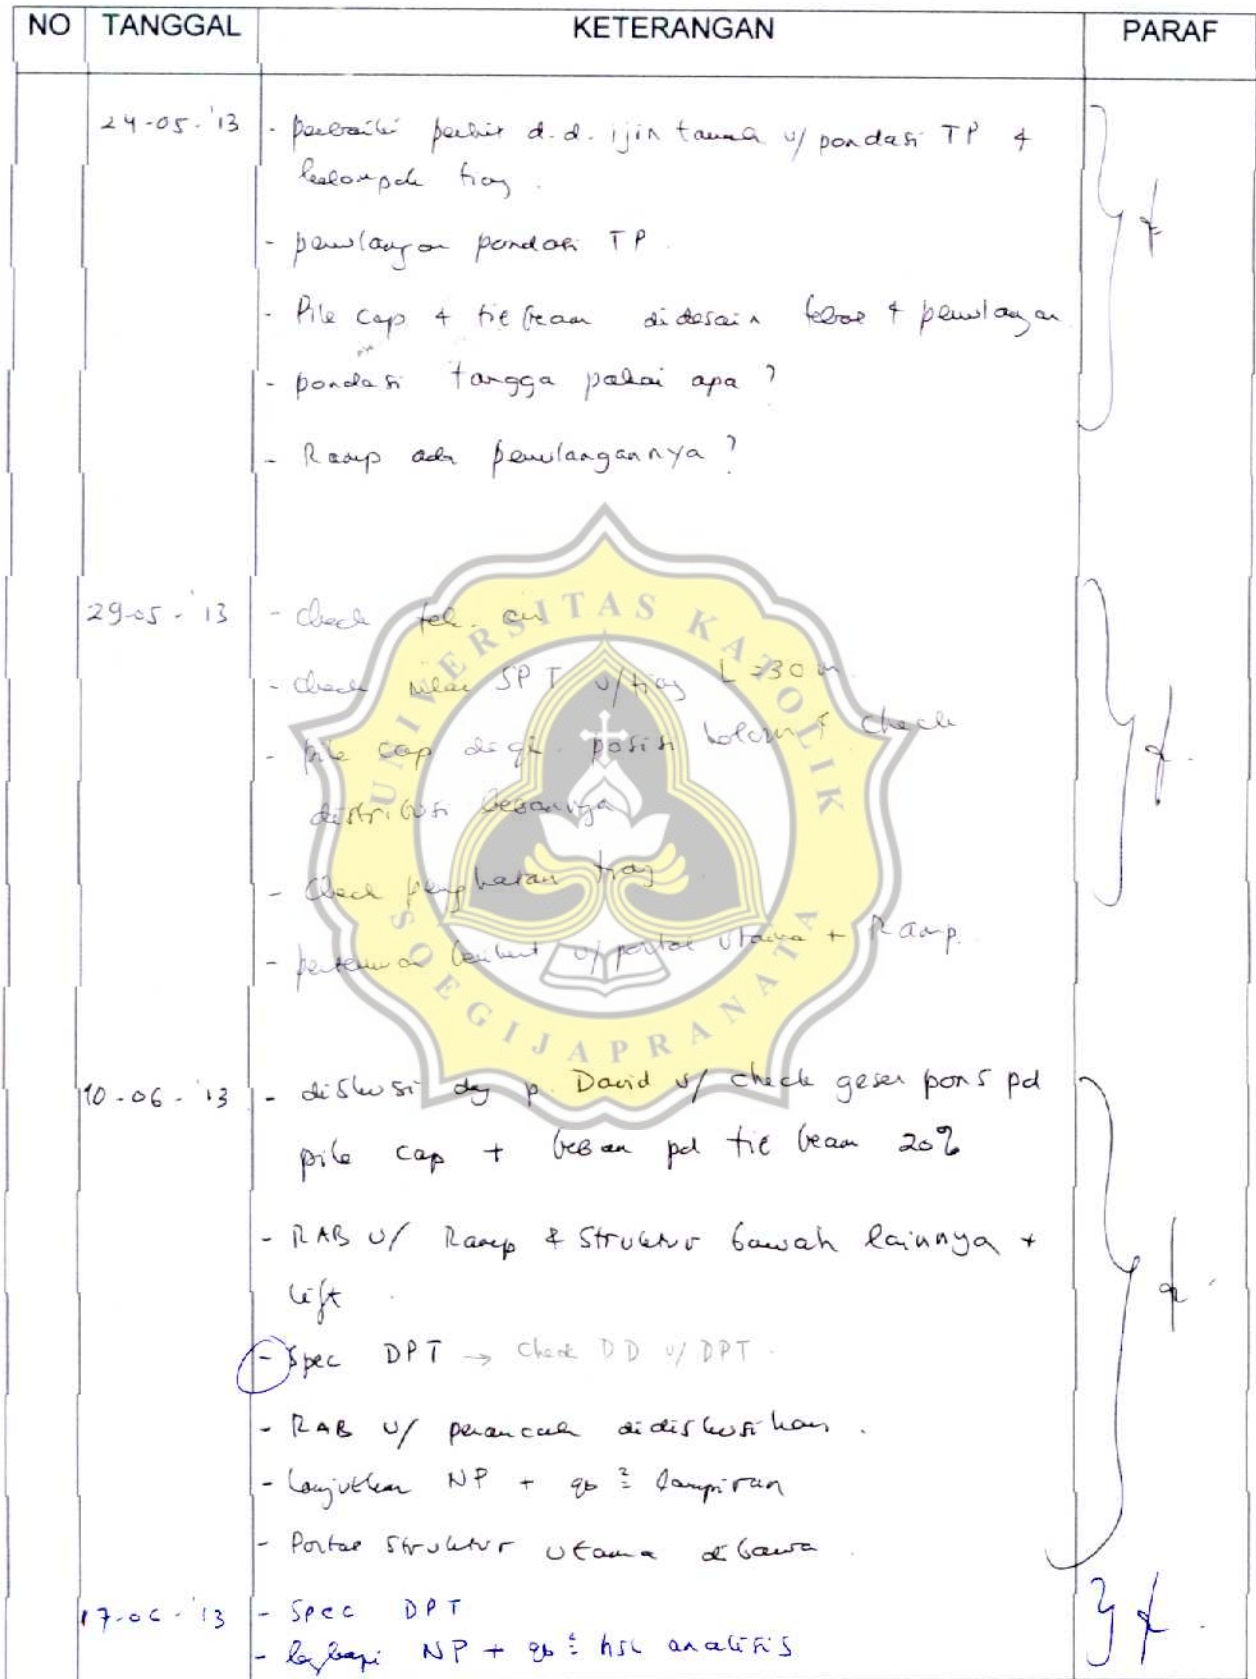 NO TANGGAL KETERANGAN PARAF
24-05-'13 - perbaiki perhit d.d. ijin tanah u/ pondasi TP &
kelompok tiang.
- penulangan pondasi TP.
- Pile cap & tie beam didesain tebal & penulangan
- pondasi tangga pakai apa?
- Ramp ada penulangannya?
29-05-'13 - check tek. air
- check nilai SPT u/ tiang L=30 m.
- pile cap posisi kolom & check
distribusi bebannya
- Check tiang
- pertemuan u/ portal utama + Ramp.
10-06-'13 - diskusi dg p. David u/ check geser pons pd
pile cap + beban pd tie beam 20%
- RAB u/ Ramp & Struktur bawah lainnya +
lift.
- Spec DPT → Check DD u/ DPT.
- RAB u/ perancah didiskusikan.
- lanjutkan NP + gb² lampiran
- Portal Struktur Utama dibawa.
17-06-'13 - Spec DPT
- lengkapi NP + gb² hsl analisis
UNIVERSITAS KATOLIK
SOEGIJAPRANATA